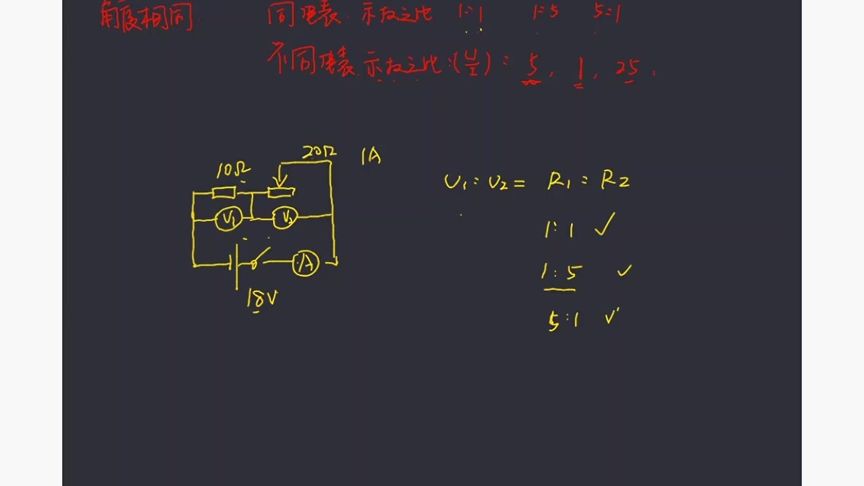 角度相同 同电表 示数之比 1:1 1:5 5:1
不同电表 示数之比:(U/I): 5, 1, 25,
20Ω 1A
10Ω
U₁:U₂ = R₁:R₂
V₁ V₂
1:1 ✓
A
1:5 ✓
18V
5:1 ✓